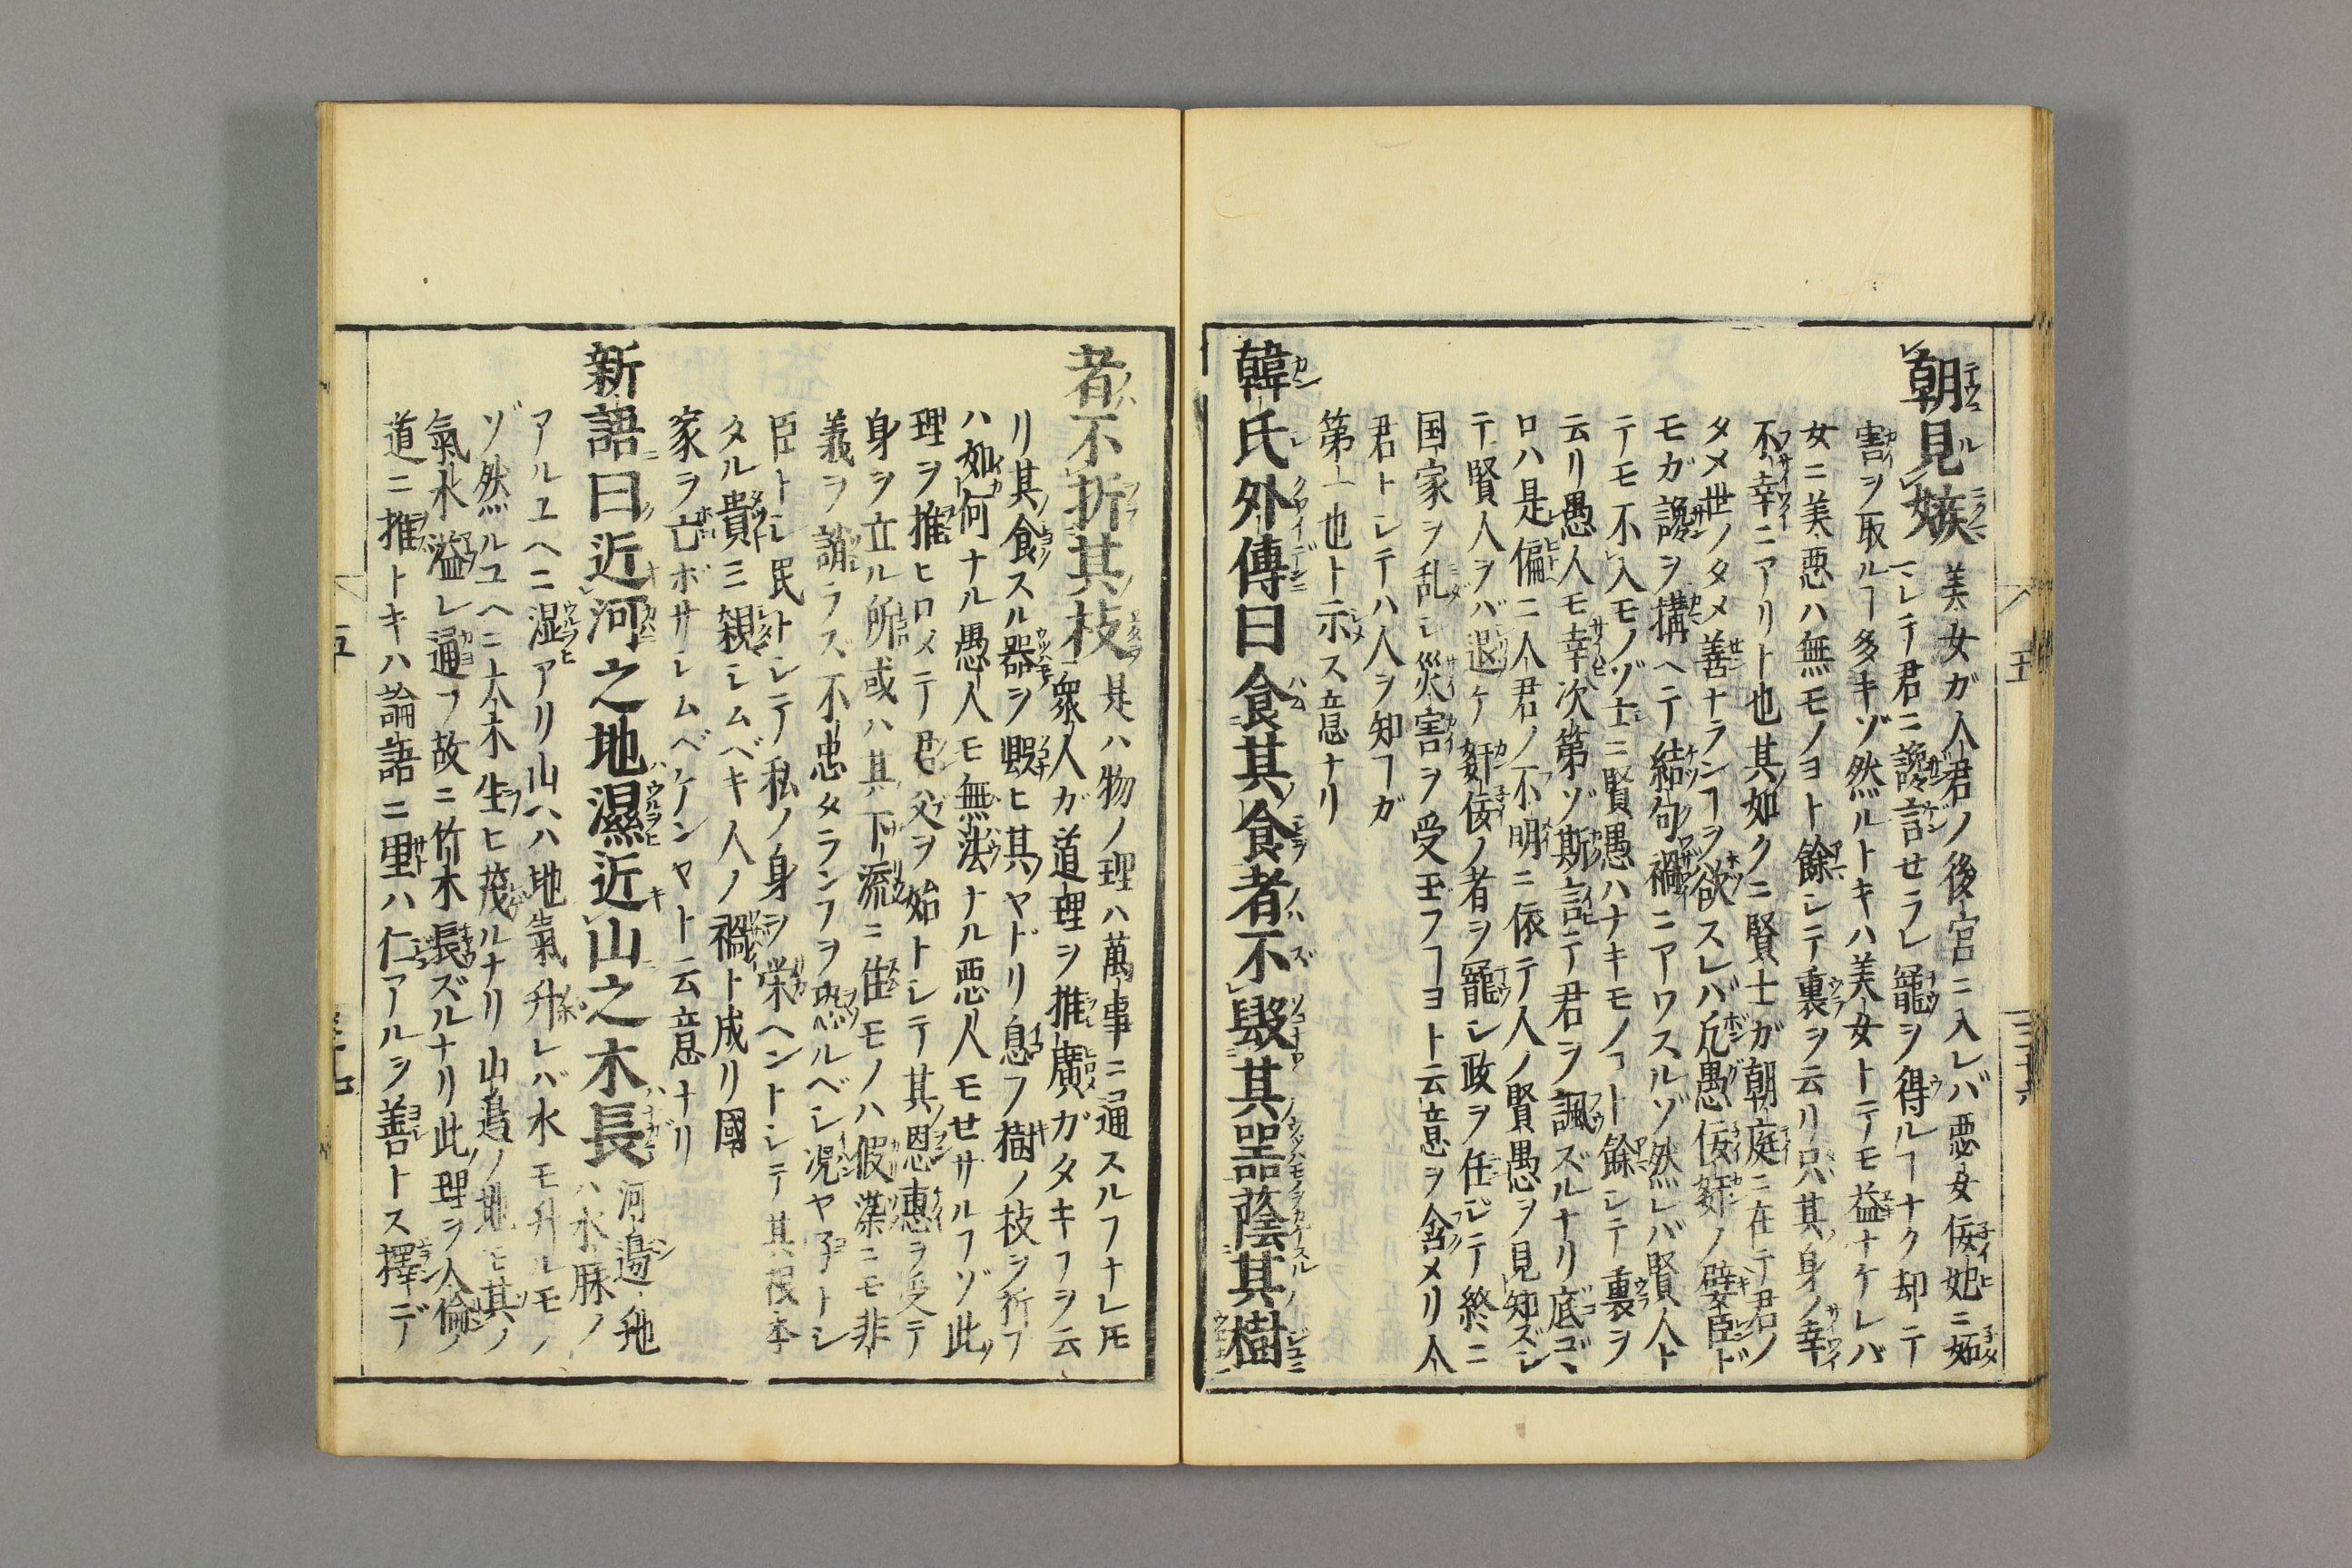 朝見嫉 美女ガ人君ノ後宮ニ入レバ悪女佞妃ニ妬
マレテ君ニ讒言セラレ寵ヲ得ルヿナク却テ
害ヲ取ルヿ多キゾ然ルトキハ美女トテモ益ナケレバ
女ニ美悪ハ無モノヨト餘シテ裏ヲ云リ只其身ノ幸
不幸ニアリト也其如クニ賢士ガ朝庭ニ在テ君ノ
タメ世ノタメ善ナランヿヲ欲スレバ凡愚佞奸ノ嬖臣ド
モガ讒ヲ構ヘテ結句禍ニアワスルゾ然レバ賢人ト
テモ不入モノゾ士ニ賢愚ハナキモノヿト餘シテ裏ヲ
云リ愚人モ幸次第ゾ斯言テ君ヲ諷ズルナリ底ゴヽ
ロハ是偏ニ人君ノ不明ニ依テ人ノ賢愚ヲ見知ズシ
テ賢人ヲバ退ケ奸佞ノ者ヲ寵シ政ヲ任ジテ終ニ
国家ヲ乱シ災害ヲ受玉フヿヨト云意ヲ含メリ人
君トシテハ人ヲ知ヿガ
第一也ト示ス意ナリ
韓氏外傳曰食其食者不毀其器蔭其樹
者不折其枝 是ハ物ノ理ハ萬事ニ通スルヿナレ𪜈
衆人ガ道理ヲ推廣ガタキヿヲ云
リ其食スル器ヲ毀ヒ其ヤドリ息フ樹ノ枝ヲ折ヿ
ハ如何ナル愚人モ無法ナル悪人モセサルヿゾ此
理ヲ推ヒロメテ君父ヲ始トシテ其恩惠ヲ受テ
身ヲ立ル所或ハ其下流ニ住モノハ假染ニモ非
義ヲ謝ラズ不忠タランヿヲ恐ルベシ况ヤ子トシ
臣トシ民トシテ私ノ身ヲ栄ヘントシテ其根本
タル貴ミ親シムベキ人ノ禍ト成リ國
家ヲ亡ボサレムベケンヤト云意ナリ
新語曰近河之地濕近山之木長 河邊ノ地
ハ水脉ノ
アルユヘニ湿アリ山ハ地氣升レバ水モ升ルモノ
ゾ然ルユヘニ大木生ヒ茂ルナリ山邊ノ地モ其ノ
氣水溢レ通フ故ニ竹木長ズルナリ此理ヲ人倫ノ
道ニ推トキハ論語ニ里ハ仁アルヲ善トス擇デ